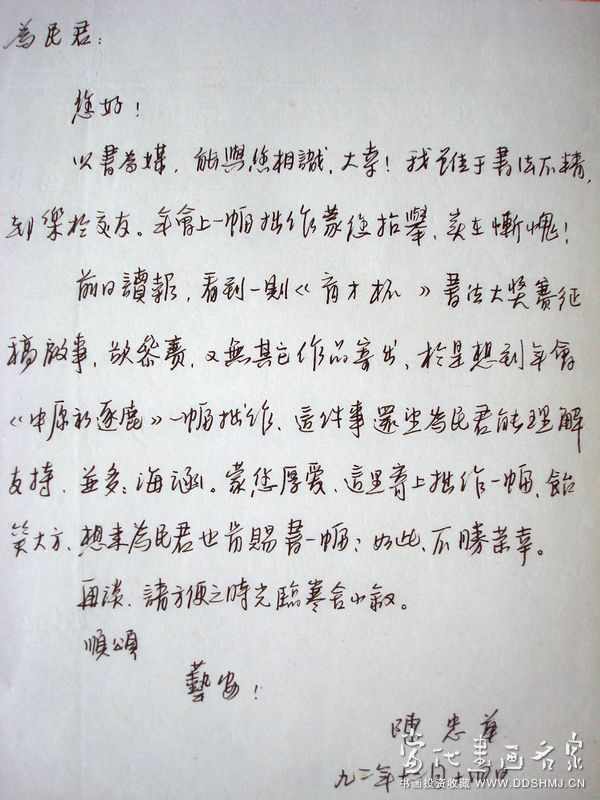 為民君：
您好！
以書為媒，能與您相識，大幸！我雖于書法不精，
却樂於交友。年會上一幅拙作蒙您抬舉，實在慚愧！
前日讀報，看到一則《育才杯》書法大奖赛征
稿啟事，欲參賽，又無其它作品寄出，於是想到年會
《中原初逐鹿》一幅拙作，這件事還望為民君能理解
支持，並多多海涵。蒙您厚爱，這里寄上拙作一幅，飴
笑大方，想来為民君也肯賜書一幅；如此，不勝荣幸。
再谈，請方便之時光臨寒舍小敘。
順頌
藝安！
陳忠華
九二年
当代书画名家
书画投资收藏 www.DDSHMJ.CN